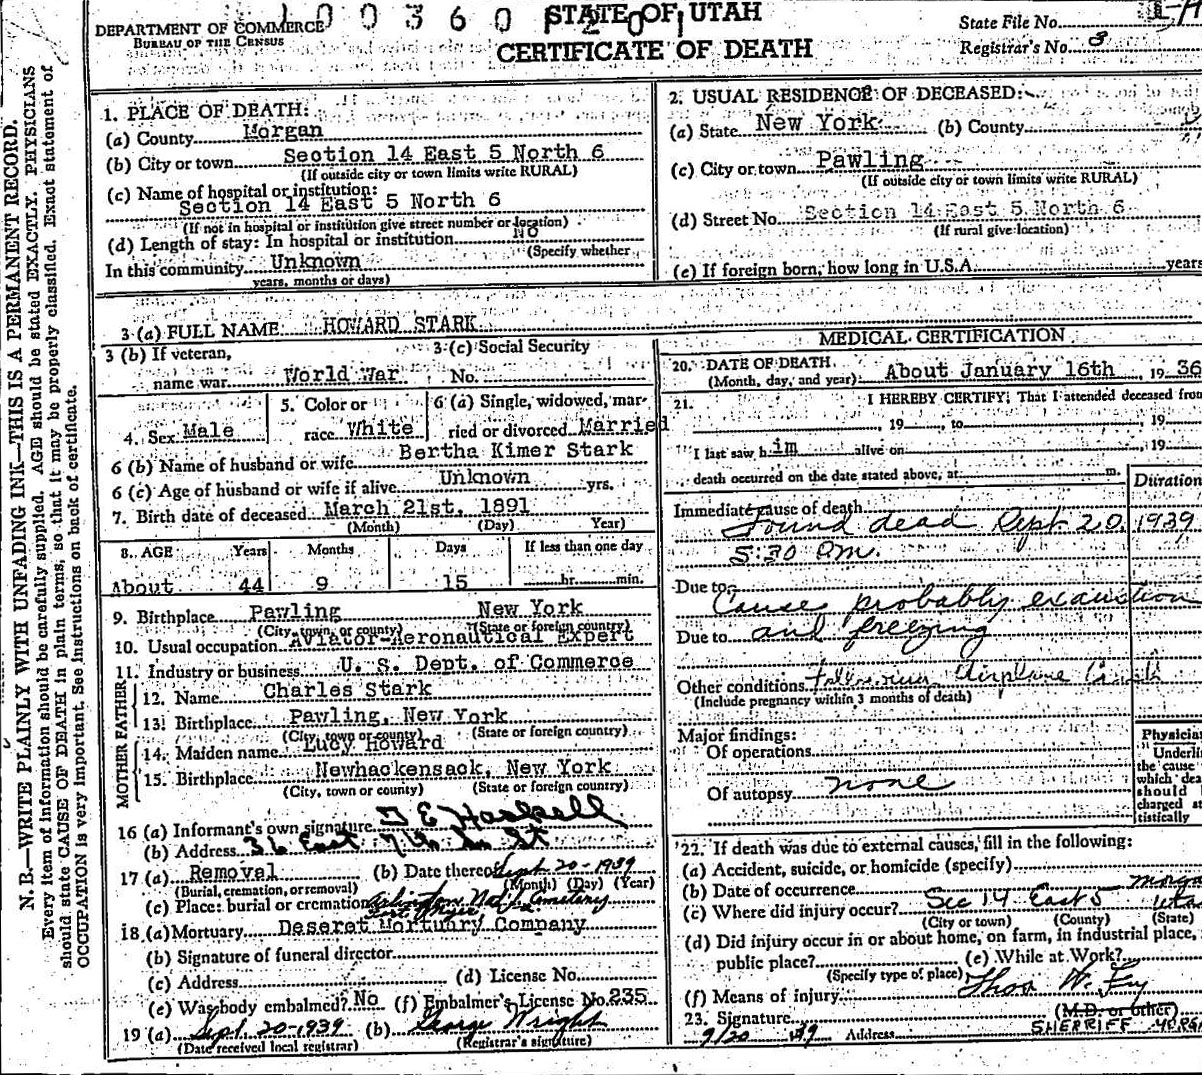 DEPARTMENT OF COMMERCE
BUREAU OF THE CENSUS
STATE OF UTAH
CERTIFICATE OF DEATH
State File No.
Registrar's No. 3
N. B.—WRITE PLAINLY WITH UNFADING INK—THIS IS A PERMANENT RECORD.
Every item of information should be carefully supplied. AGE should be stated EXACTLY. PHYSICIANS
should state CAUSE OF DEATH in plain terms, so that it may be properly classified. Exact statement of
OCCUPATION is very important. See instructions on back of certificate.
1. PLACE OF DEATH:
(a) County Morgan
(b) City or town Section 14 East 5 North 6
(If outside city or town limits write RURAL)
(c) Name of hospital or institution:
Section 14 East 5 North 6
(If not in hospital or institution give street number or location)
(d) Length of stay: In hospital or institution NO
(Specify whether
In this community Unknown
years, months or days)
2. USUAL RESIDENCE OF DECEASED:
(a) State New York (b) County
(c) City or town Pawling
(If outside city or town limits write RURAL)
(d) Street No. Section 14 East 5 North 6
(If rural give location)
(e) If foreign born, how long in U.S.A. years
3 (a) FULL NAME HOWARD STARK
3 (b) If veteran,
name war World War
3 (c) Social Security
No.
4. Sex Male
5. Color or
race White
6 (a) Single, widowed, mar-
ried or divorced Married
6 (b) Name of husband or wife Bertha Kimer Stark
6 (c) Age of husband or wife if alive Unknown yrs.
7. Birth date of deceased March 21st, 1891
(Month) (Day) Year)
8. AGE Years Months Days If less than one day
About 44 9 15 hr. min.
9. Birthplace Pawling New York
(City, town, or county) (State or foreign country)
10. Usual occupation Aviator-Aeronautical Expert
11. Industry or business U. S. Dept. of Commerce
FATHER
12. Name Charles Stark
13. Birthplace Pawling, New York
(City, town or county) (State or foreign country)
MOTHER
14. Maiden name Lucy Howard
15. Birthplace Newhackensack, New York
(City, town or county) (State or foreign country)
16 (a) Informant's own signature T E Haskell
(b) Address 36 East 7th So St
17 (a) Removal (b) Date thereof Sept 20-1939
(Burial, cremation, or removal) (Month) (Day) (Year)
(c) Place: burial or cremation Arlington Nat'l Cemetery
18 (a) Mortuary Deseret Mortuary Company
(b) Signature of funeral director
(c) Address (d) License No.
(e) Was body embalmed? No (f) Embalmer's License No. 235
19 (a) Sept. 20-1939 (b) George Wright
(Date received local registrar) (Registrar's signature)
MEDICAL CERTIFICATION
20. DATE OF DEATH
(Month, day, and year) About January 16th, 19 36
21. I HEREBY CERTIFY, That I attended deceased from
, 19 , to , 19
I last saw h im alive on , 19
death occurred on the date stated above, at m.
Duration
Immediate cause of death
Found dead Sept 20, 1939
5:30 P.m.
Due to
Cause probably exaustion
Due to and freezing
Other conditions Following Airplane Crash
(Include pregnancy within 3 months of death)
Major findings:
Of operations
Of autopsy none
Physician
Underline
the cause
which death
should
charged
tistically
22. If death was due to external causes, fill in the following:
(a) Accident, suicide, or homicide (specify)
(b) Date of occurrence
(c) Where did injury occur? Sec 14 East 5 Morgan Utah
(City or town) (County) (State)
(d) Did injury occur in or about home, on farm, in industrial place,
public place? (e) While at Work?
(Specify type of place)
(f) Means of injury
23. Signature Thos W. Fry
(M.D. or other)
9/20 39 Address SHERRIFF